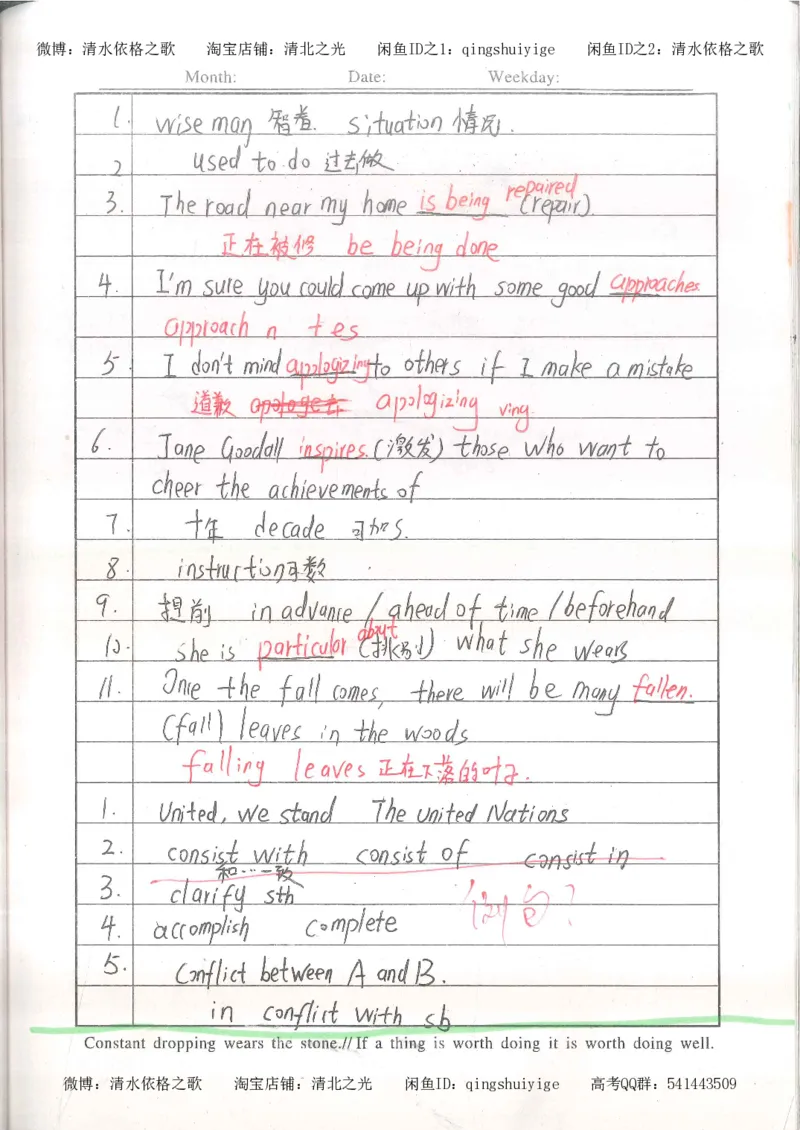 微博：清水依格之歌 淘宝店铺：清北之光 闲鱼ID之1：qingshuiyige 闲鱼ID之2：清水依格之歌
Month: Date: Weekday:
1. wise man 智者. situation 情况.
2 used to do 过去做
3. The road near my home is being repaired (repair).
正在被修 be being done
4. I'm sure you could come up with some good approaches
approach n + es
5. I don't mind apologizing to others if I make a mistake
道歉 apologizing ving.
6. Jane Goodall inspires. (激发) those who want to
cheer the achievements of
7. 十年 decade 可加s.
8. instruction 可数
9. 提前 in advance / ahead of time / beforehand
10. she is particular about (挑剔) what she wears
11. Once the fall comes, there will be many fallen.
(fall) leaves in the woods
falling leaves 正在下落的叶子.
1. United, we stand The united Nations
2. consist with consist of consist in
和…一致
3. clarify sth 例句?
4. accomplish complete
5. Conflict between A and B.
in conflict with sb
Constant dropping wears the stone.//If a thing is worth doing it is worth doing well.
微博：清水依格之歌 淘宝店铺：清北之光 闲鱼ID：qingshuiyige 高考QQ群：541443509